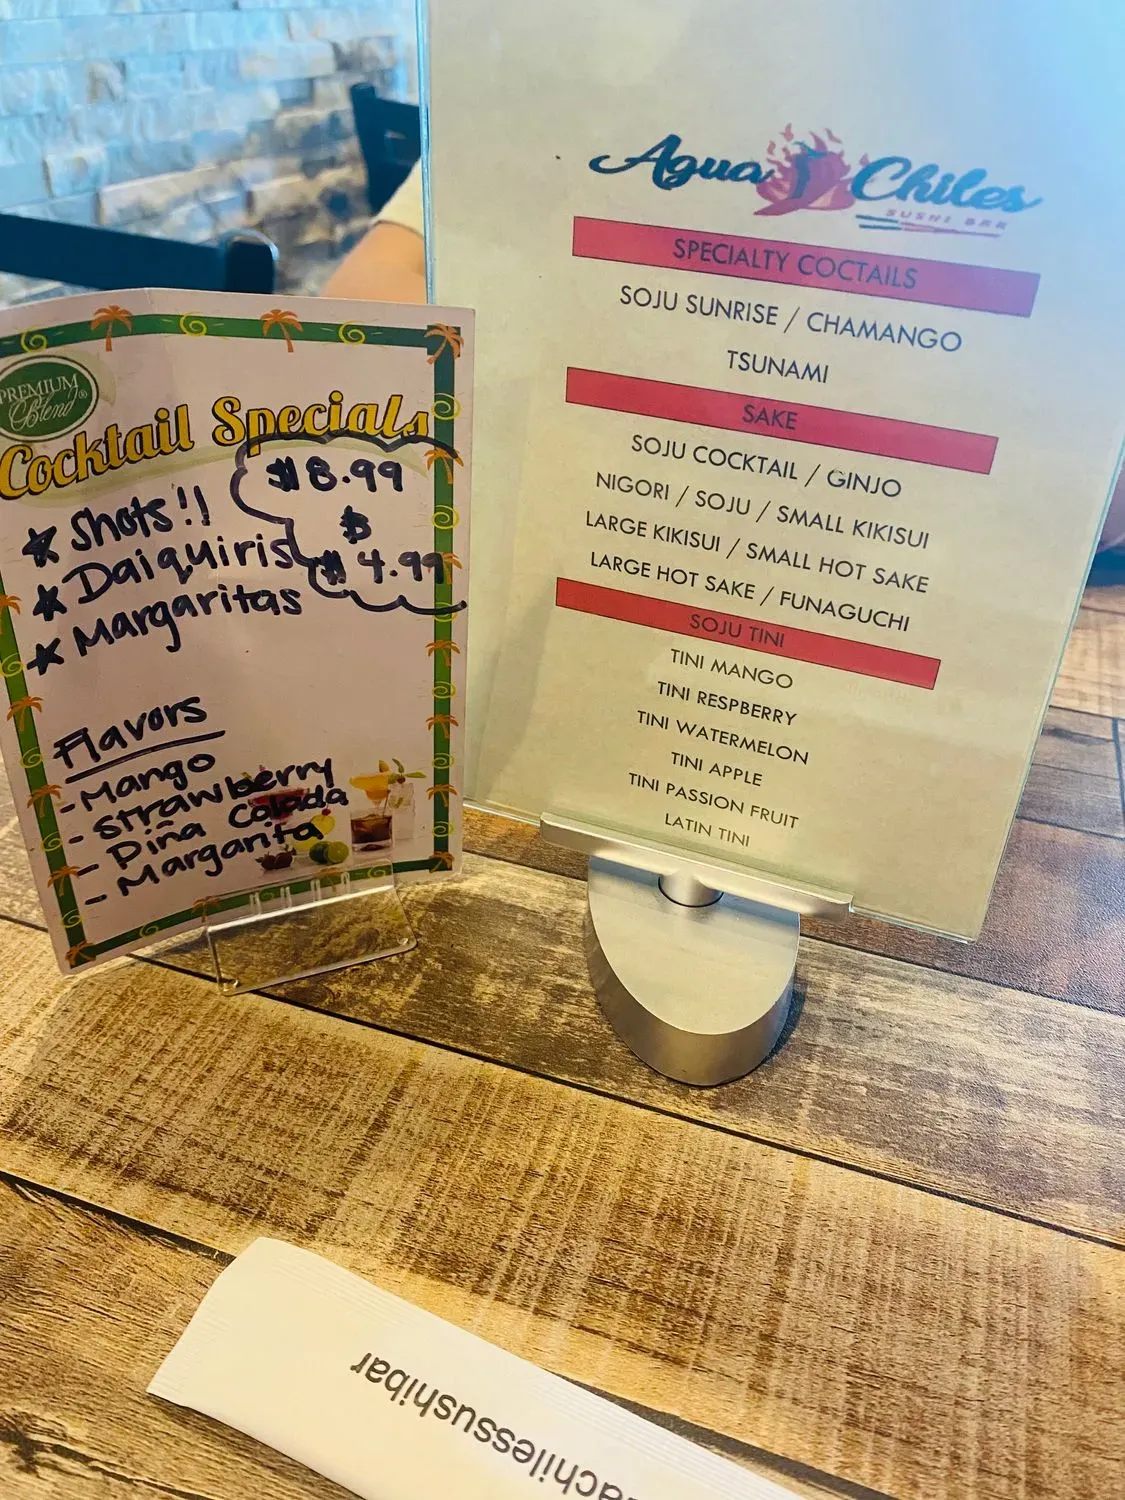 PREMIUM
Blend®
Cocktail Specials
★ Shots!!
★ Daiquiris
★ Margaritas
$8.99
$
$4.99
Flavors
- Mango
- Strawberry
- Piña Colada
- Margarita
Agua Chiles
SUSHI BAR
SPECIALTY COCTAILS
SOJU SUNRISE / CHAMANGO
TSUNAMI
SAKE
SOJU COCKTAIL / GINJO
NIGORI / SOJU / SMALL KIKISUI
LARGE KIKISUI / SMALL HOT SAKE
LARGE HOT SAKE / FUNAGUCHI
SOJU TINI
TINI MANGO
TINI RESPBERRY
TINI WATERMELON
TINI APPLE
TINI PASSION FRUIT
LATIN TINI
achilessushibar